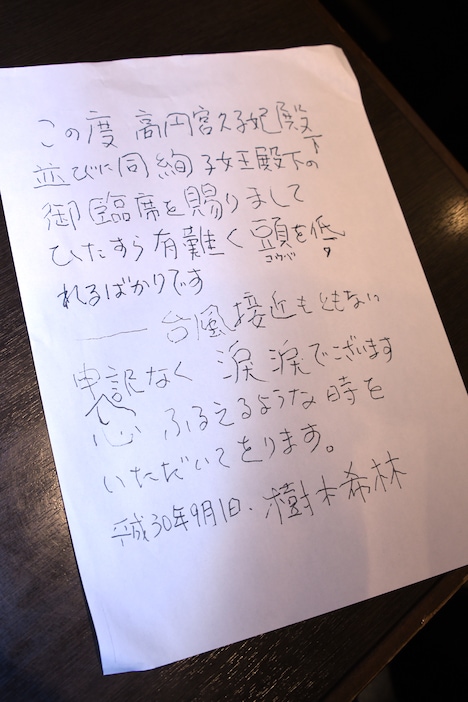 この度 高円宮久子妃殿下
並びに同 絢子女王殿下の
御臨席を賜りまして
ひたすら有難く 頭を低
コウベ タ
れるばかりです
―― 台風接近もともない
申訳なく 涙 涙でございます
心 ふるえるような時を
いただいてをります。
平成30年9月1日. 樹木希林